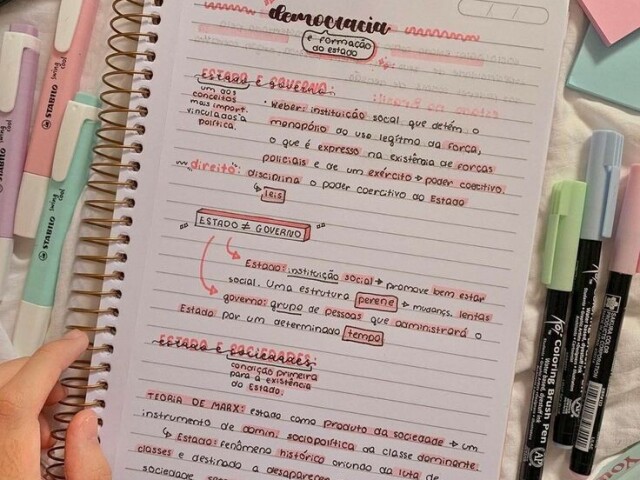 democracia
e formação
do estado
ESTADO E GOVERNO:
um dos
conceitos
mais import.
vinculados à
política.
• Weber: instituição social que detém o
monopólio do uso legítmo da força,
o que é expresso na existência de forças
policiais e de um exército → poder coercitivo.
direito: disciplina o poder coercitivo do Estado
↳ leis
ESTADO ≠ GOVERNO
Estado: instituição social → promove bem estar
social. Uma estrutura perene → mudanç. lentas
governo: grupo de pessoas que administrará o
Estado por um determinado tempo
ESTADO E SOCIEDADES:
condição primeira
para a existência
do Estado.
TEORIA DE MARX: estado como produto da sociedade → um
instrumento de domin. sociopolítica da classe dominante.
↳ Estado: fenômeno histórico oriundo da luta de
classes e destinado a desaparecer
sociedade
STABILO swing cool
STABILO swing cool
STABILO swing cool
Coloring Brush Pen
SAKURA COLOR PRODUCTS CORPORATION
AP
You